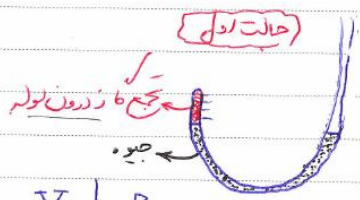 (حالت اول)
تجمع گاز درون لوله
جیوه